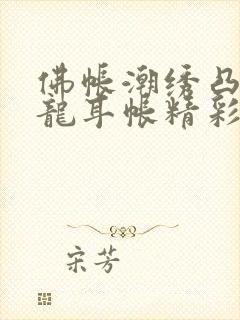 佛帐潮绣凸
龍耳帐精彩
宋芳